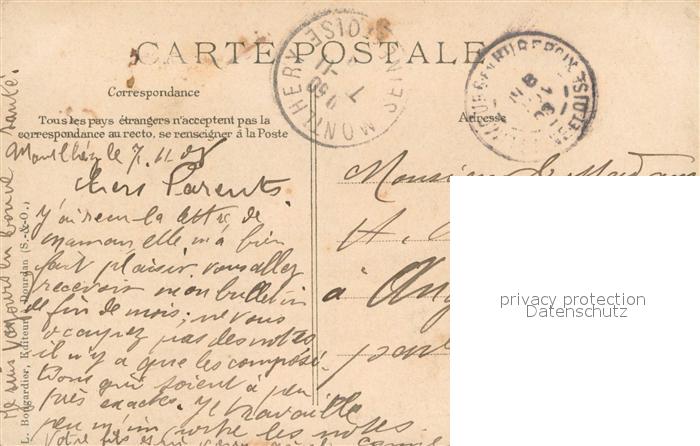 CARTE POSTALE
Correspondance
Tous les pays étrangers n'acceptent pas la
correspondance au recto, se renseigner à la Poste
Adresse
MONTLHERY
SEINE-ET-OISE
Montlhéry le 7.11.05
Chers Parents.
J'ai reçu la lettre de
maman elle m'a bien
fait plaisir. vous allez
recevoir mon bulletin
de fin de mois; ne vous
occupez pas des notes
il n'y a que les composi-
tions qui soient à peu
près exactes. Je travaille
peu m'importe les notes.
Votre fils
Je suis toujours en bonne santé.
L. Bougardier, Editeur, Dourdan (S.-&-O.)
Monsieur & Madame
A.
à Ang
par
privacy protection
Datenschutz